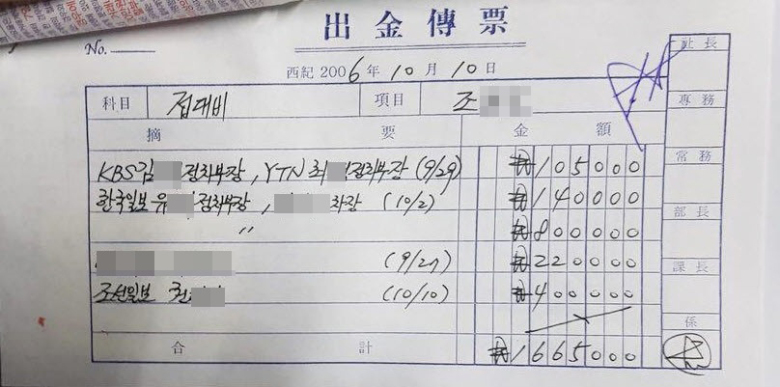 出金傳票
No.
西紀 2006年 10月 10日
社長
科目 접대비 項目 조
專務
摘要 金額
常務
KBS김 정치부장, YTN 최 정치부장 (9/29) ₩105000
한국일보 유 정치부장, 차장 (10/2) ₩140000
部長
〃 ₩800000
(9/27) ₩220000
課長
조선일보 (10/10) ₩400000
係
合計 ₩1665000